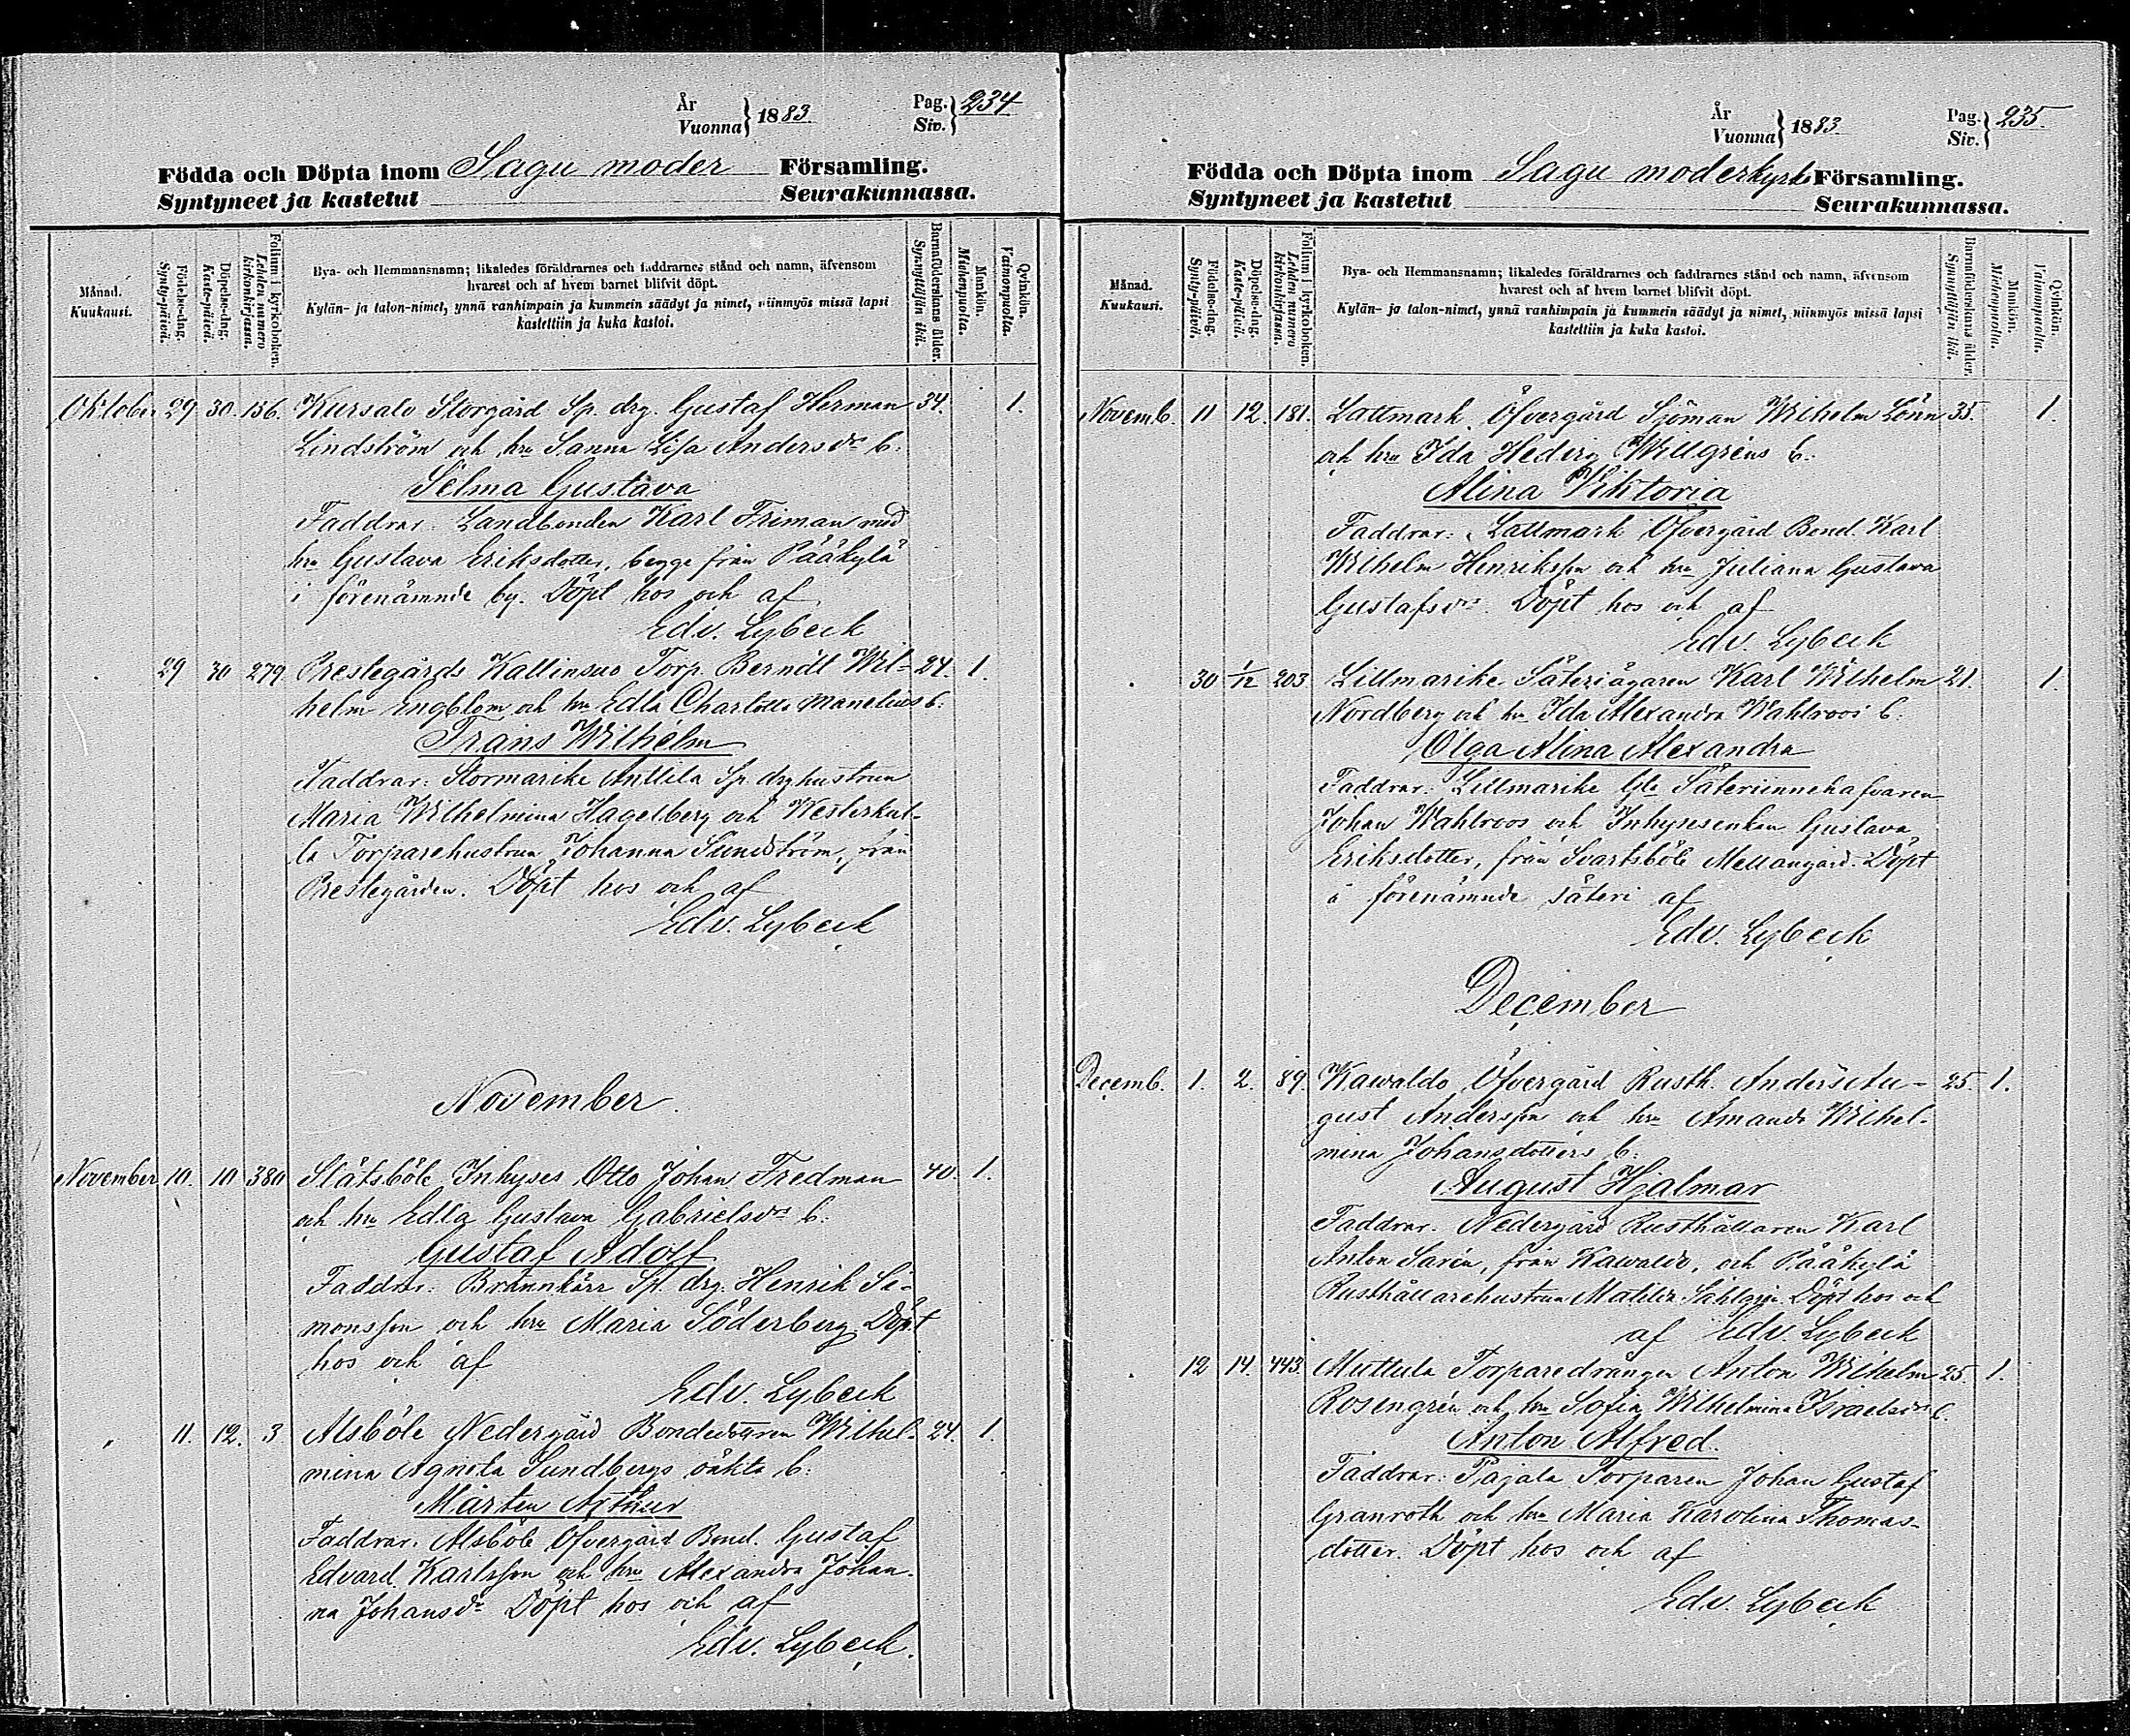 År
Vuonna } 1883.
Pag.
Siv. } 234
Födda och Döpta inom Sagu moder Församling.
Syntyneet ja kastetut Seurakunnassa.
Månad.
Kuukausi.
Födelse-dag.
Synty-päivä.
Döpelse-dag.
Kaste-päivä.
Folium i kyrkoboken.
Lehden numero kirkonkirjassa.
Bya- och Hemmansnamn; likaledes föräldrarnes och faddrarnes stånd och namn, äfvensom
hvarest och af hvem barnet blifvit döpt.
Kylän- ja talon-nimet, ynnä vanhimpain ja kummein säädyt ja nimet, niinmyös missä lapsi
kastettiin ja kuka kastoi.
Barnaföderskans ålder.
Synnyttäjän ikä.
Mankön.
Miehenpuolta.
Qvinkön.
Vaimonpuolta.
Oktober 29 30. 156. Kursalo Storgård Sp. drg. Gustaf Herman 34. 1.
Lindström och hru Sanna Lisa Andersdrs b.
Selma Gustava
Faddrar: Landbonden Karl Friman med
hru Gustava Eriksdotter, begge från Pääkylä
i förenämnde by. Döpt hos och af
Edv. Lybeck
29 30 279. Prestegårds Kallinsuo Torp. Berndt Wil- 24. 1.
helm Engblom och hru Edla Charlotta Manelius b.
Frans Wilhelm
Faddrar: Stormarike Anttila Sp. drghustrun
Maria Wilhelmina Hagelberg och Westerkul-
la Torparehustrun Johanna Sundström, från
Prestegården. Döpt hos och af
Edv. Lybeck
November.
November 10. 10 380 Slätsböle Inhyses Otto Johan Fredman 40. 1.
och hru Edla Gustava Gabrielsdrs b:
Gustaf Adolf
Faddrar: Brännkärr Sp. drg. Henrik Si-
monsson och hru Maria Söderberg Döpt
hos och af
Edv. Lybeck
11. 12. 3 Alsböle Nedergård Bondedottren Wilhel- 24. 1.
mina Agneta Sundbergs oäkta b:
Mårten Arthur
Faddrar: Alsböle Öfvergård Bond. Gustaf
Edvard Karlsson och hru Alexandra Johan-
na Johansdr Döpt hos och af
Edv. Lybeck.
År
Vuonna } 1883.
Pag.
Siv. } 235.
Födda och Döpta inom Sagu moderkyrko Församling.
Syntyneet ja kastetut Seurakunnassa.
Månad.
Kuukausi.
Födelse-dag.
Synty-päivä.
Döpelse-dag.
Kaste-päivä.
Folium i kyrkoboken.
Lehden numero kirkonkirjassa.
Bya- och Hemmansnamn; likaledes föräldrarnes och faddrarnes stånd och namn, äfvensom
hvarest och af hvem barnet blifvit döpt.
Kylän- ja talon-nimet, ynnä vanhimpain ja kummein säädyt ja nimet, niinmyös missä lapsi
kastettiin ja kuka kastoi.
Barnföderskans ålder.
Synnyttäjän ikä.
Mankön.
Miehenpuolta.
Qvinkön.
Vaimonpuolta.
Novemb. 11 12. 181. Lattmark Öfvergård Sjöman Wilhelm Lönn 35. 1.
och hru Ida Hedvig Willgréns b.
Alina Viktoria
Faddrar: Lattmark Öfvergård Bond. Karl
Wilhelm Henriksson och hru Juliana Gustava
Gustafsdrs Döpt hos och af
Edv. Lybeck
30 1/12 203 Lillmarike Säteriägaren Karl Wilhelm 21. 1.
Nordberg och hru Ida Alexandra Wahlroos b.
Olga Alina Alexandra
Faddrar: Lillmarike Gle Säteriinnehafvaren
Johan Wahlroos och Inhysesenkan Gustava
Eriksdotter, från Svartsböle Mellangård. Döpt
å förenämnde säteri af
Edv. Lybeck
December
Decemb. 1. 2. 89. Kawaldo Öfvergård Rusth. Anders Au- 25. 1.
gust Andersson och hru Amanda Wilhel-
mina Johansdotters b:
August Hjalmar
Faddrar. Nedergård Rusthållaren Karl
Anton Sarén, från Kawaldo, och Pääkylä
Rusthållarehustrun Matilda Sahlgrén Döpt hos och
af Edv. Lybeck
12 14. 443. Muttula Torparedrängen Anton Wilhelm 25. 1.
Rosengrén och hru Sofia Wilhelmina Israelsdrs b.
Anton Alfred.
Faddrar: Pajala Torparen Johan Gustaf
Granroth och hru Maria Karolina Thomas-
dotter. Döpt hos och af
Edv. Lybeck